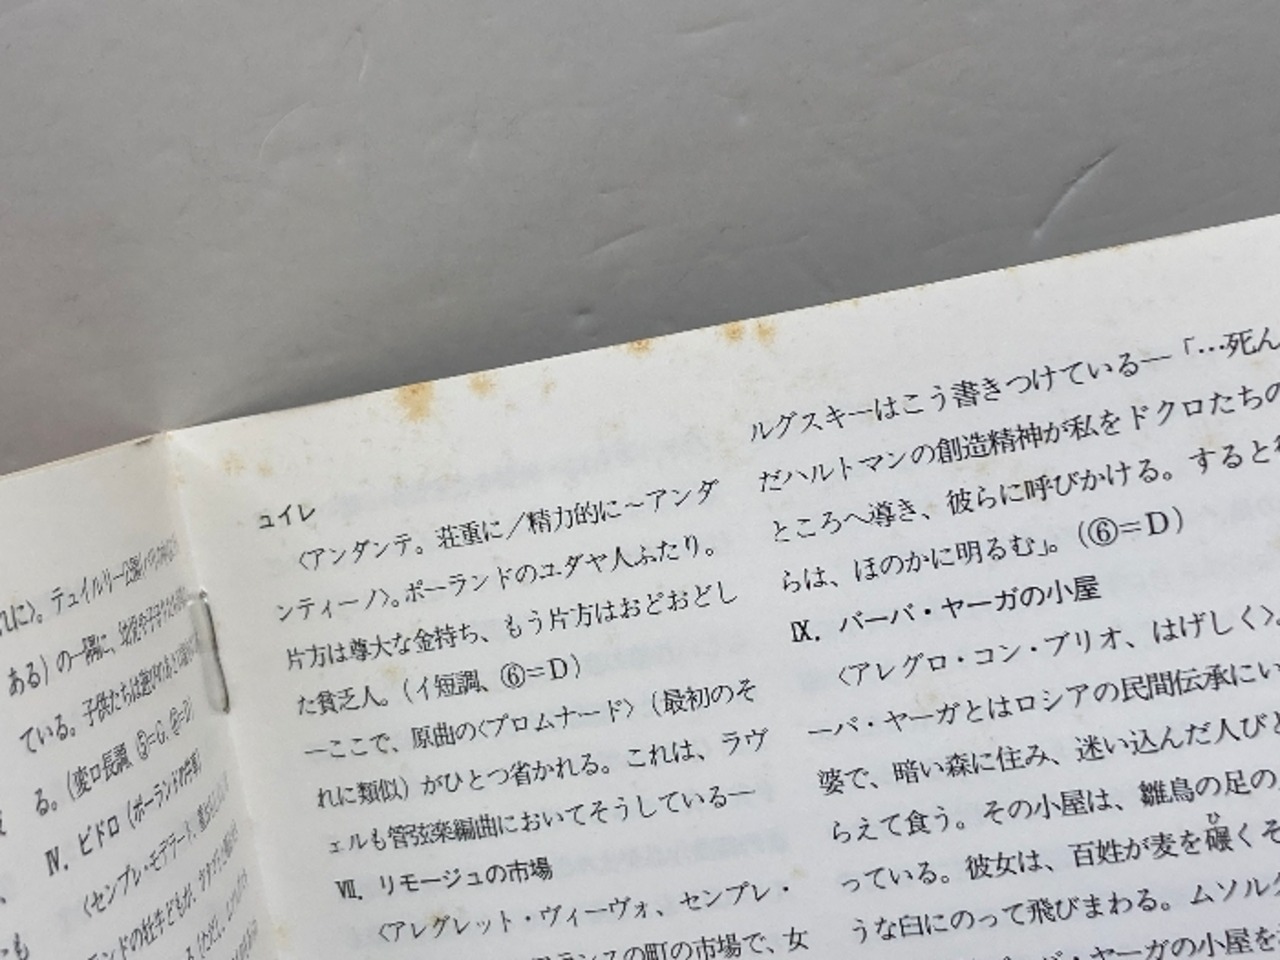 れに〉。テュイルリー公園
ある）の一隅に、
ている。子供たちは
る。（変ロ長調、⑤=G、
Ⅳ．ビドロ（ポーランドの牛車）
〈センプレ・モデラート、
ンドの牡牛どもが、
ュイレ
〈アンダンテ。荘重に／精力的に～アンダ
ンティーノ〉。ポーランドのユダヤ人ふたり。
片方は尊大な金持ち、もう片方はおどおどし
た貧乏人。（イ短調、⑥=D）
―ここで、原曲の〈プロムナード〉（最初のそ
れに類似）がひとつ省かれる。これは、ラヴ
ェルも管弦楽編曲においてそうしている―
Ⅶ．リモージュの市場
〈アレグレット・ヴィーヴォ、センプレ・
ランスの町の市場で、女
ルグスキーはこう書きつけている―「…死ん
だハルトマンの創造精神が私をドクロたちの
ところへ導き、彼らに呼びかける。すると
らは、ほのかに明るむ」。（⑥=D）
Ⅸ．バーバ・ヤーガの小屋
〈アレグロ・コン・ブリオ、はげしく〉。
ーバ・ヤーガとはロシアの民間伝承にい
婆で、暗い森に住み、迷い込んだ人びと
らえて食う。その小屋は、雛鳥の足の
っている。彼女は、百姓が麦を碾くそ
うな臼にのって飛びまわる。ムソルグ
バ・ヤーガの小屋を